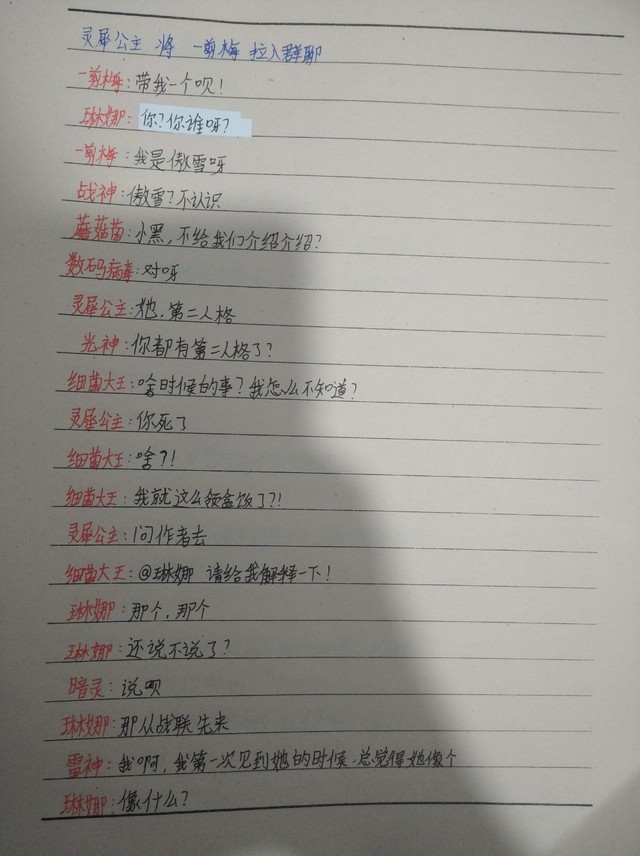 灵犀公主 将 一剪梅 拉入群聊
一剪梅：带我一个呗！
琳娜：你？你谁呀？
一剪梅：我是傲雪呀
战神：傲雪？不认识
蘑菇菌：小黑，不给我们介绍介绍？
数码病毒：对呀
灵犀公主：她，第二人格
光神：你都有第二人格了？
细菌大王：啥时候的事？我怎么不知道？
灵犀公主：你死了
细菌大王：啥？！
细菌大王：我就这么领盒饭了？！
灵犀公主：问作者去
细菌大王：@琳娜 请给我解释一下！
琳娜：那个，那个
琳娜：还说不说了？
暗灵：说呗
琳娜：那从战联先来
雷神：我啊，我第一次见到她的时候，总觉得她像个
琳娜：像什么？